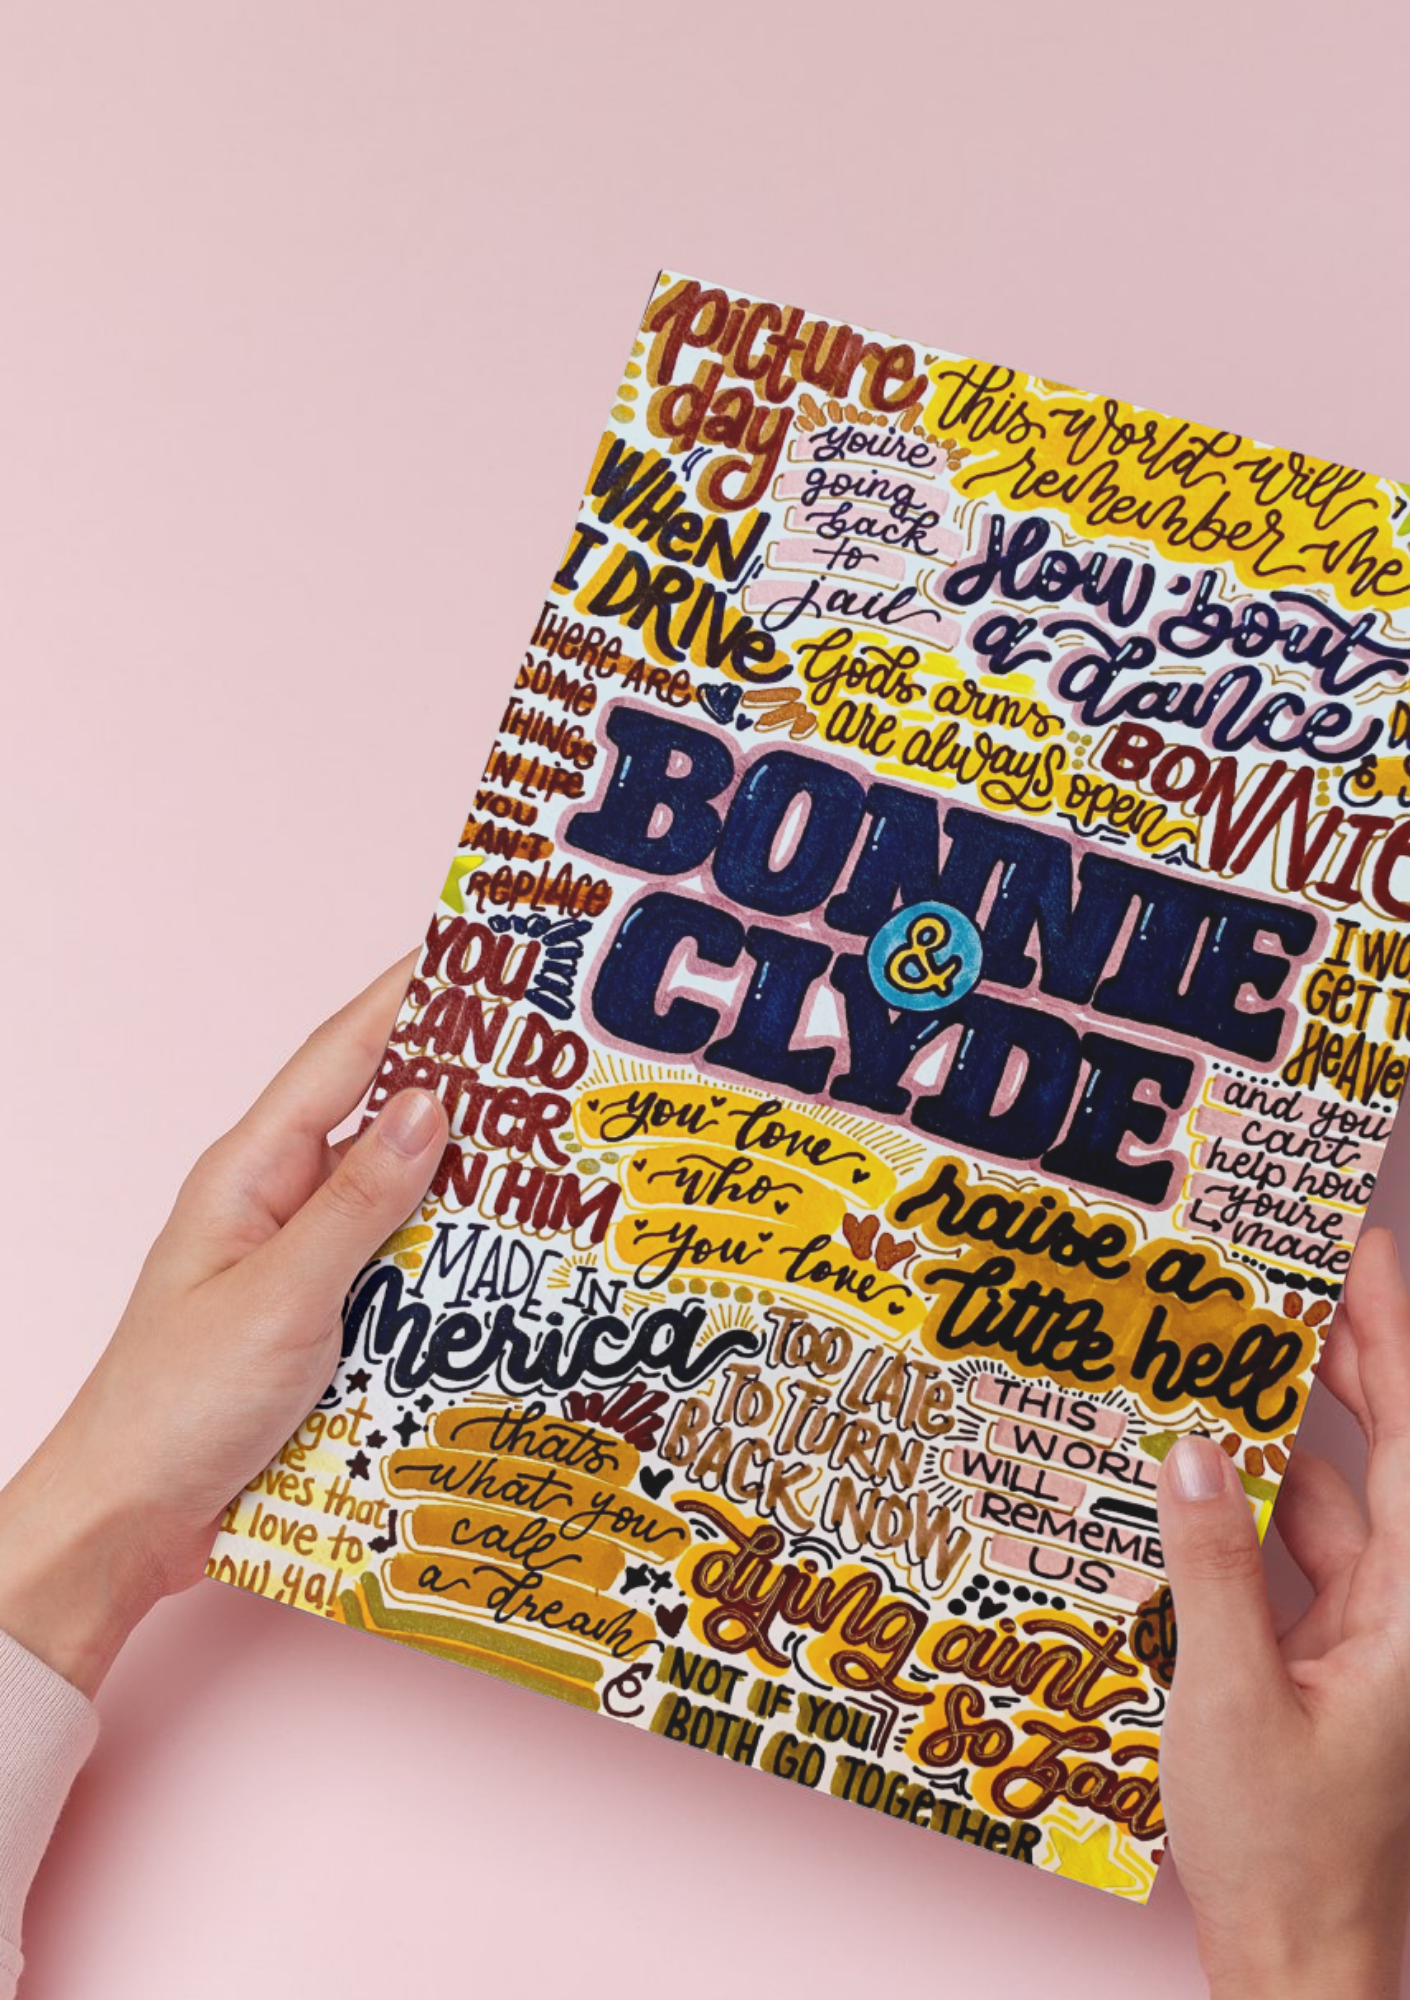 picture
day
this world will
remember me
you're
going
back
to
jail
"When
I DRIVE"
How 'bout
a dance
THERE ARE
SOME
THINGS
IN LIFE
YOU
CAN'T
REPLACE
Gods arms
are always
open
BONNIE
BONNIE
&
CLYDE
YOU
CAN DO
BETTER
HIM
I WO
GET T
HEAVE
and you
can't
help how
you're
made
you love
who
you love
raise a
little hell
MADE IN
Merica
TOO LATE
TO TURN
BACK NOW
THIS
WORL
WILL
REMEMB
US
got
oves that
I love to
ya!
thats
what you
call
a dream
dying aint
so bad
NOT IF YOU
BOTH GO TOGETHER